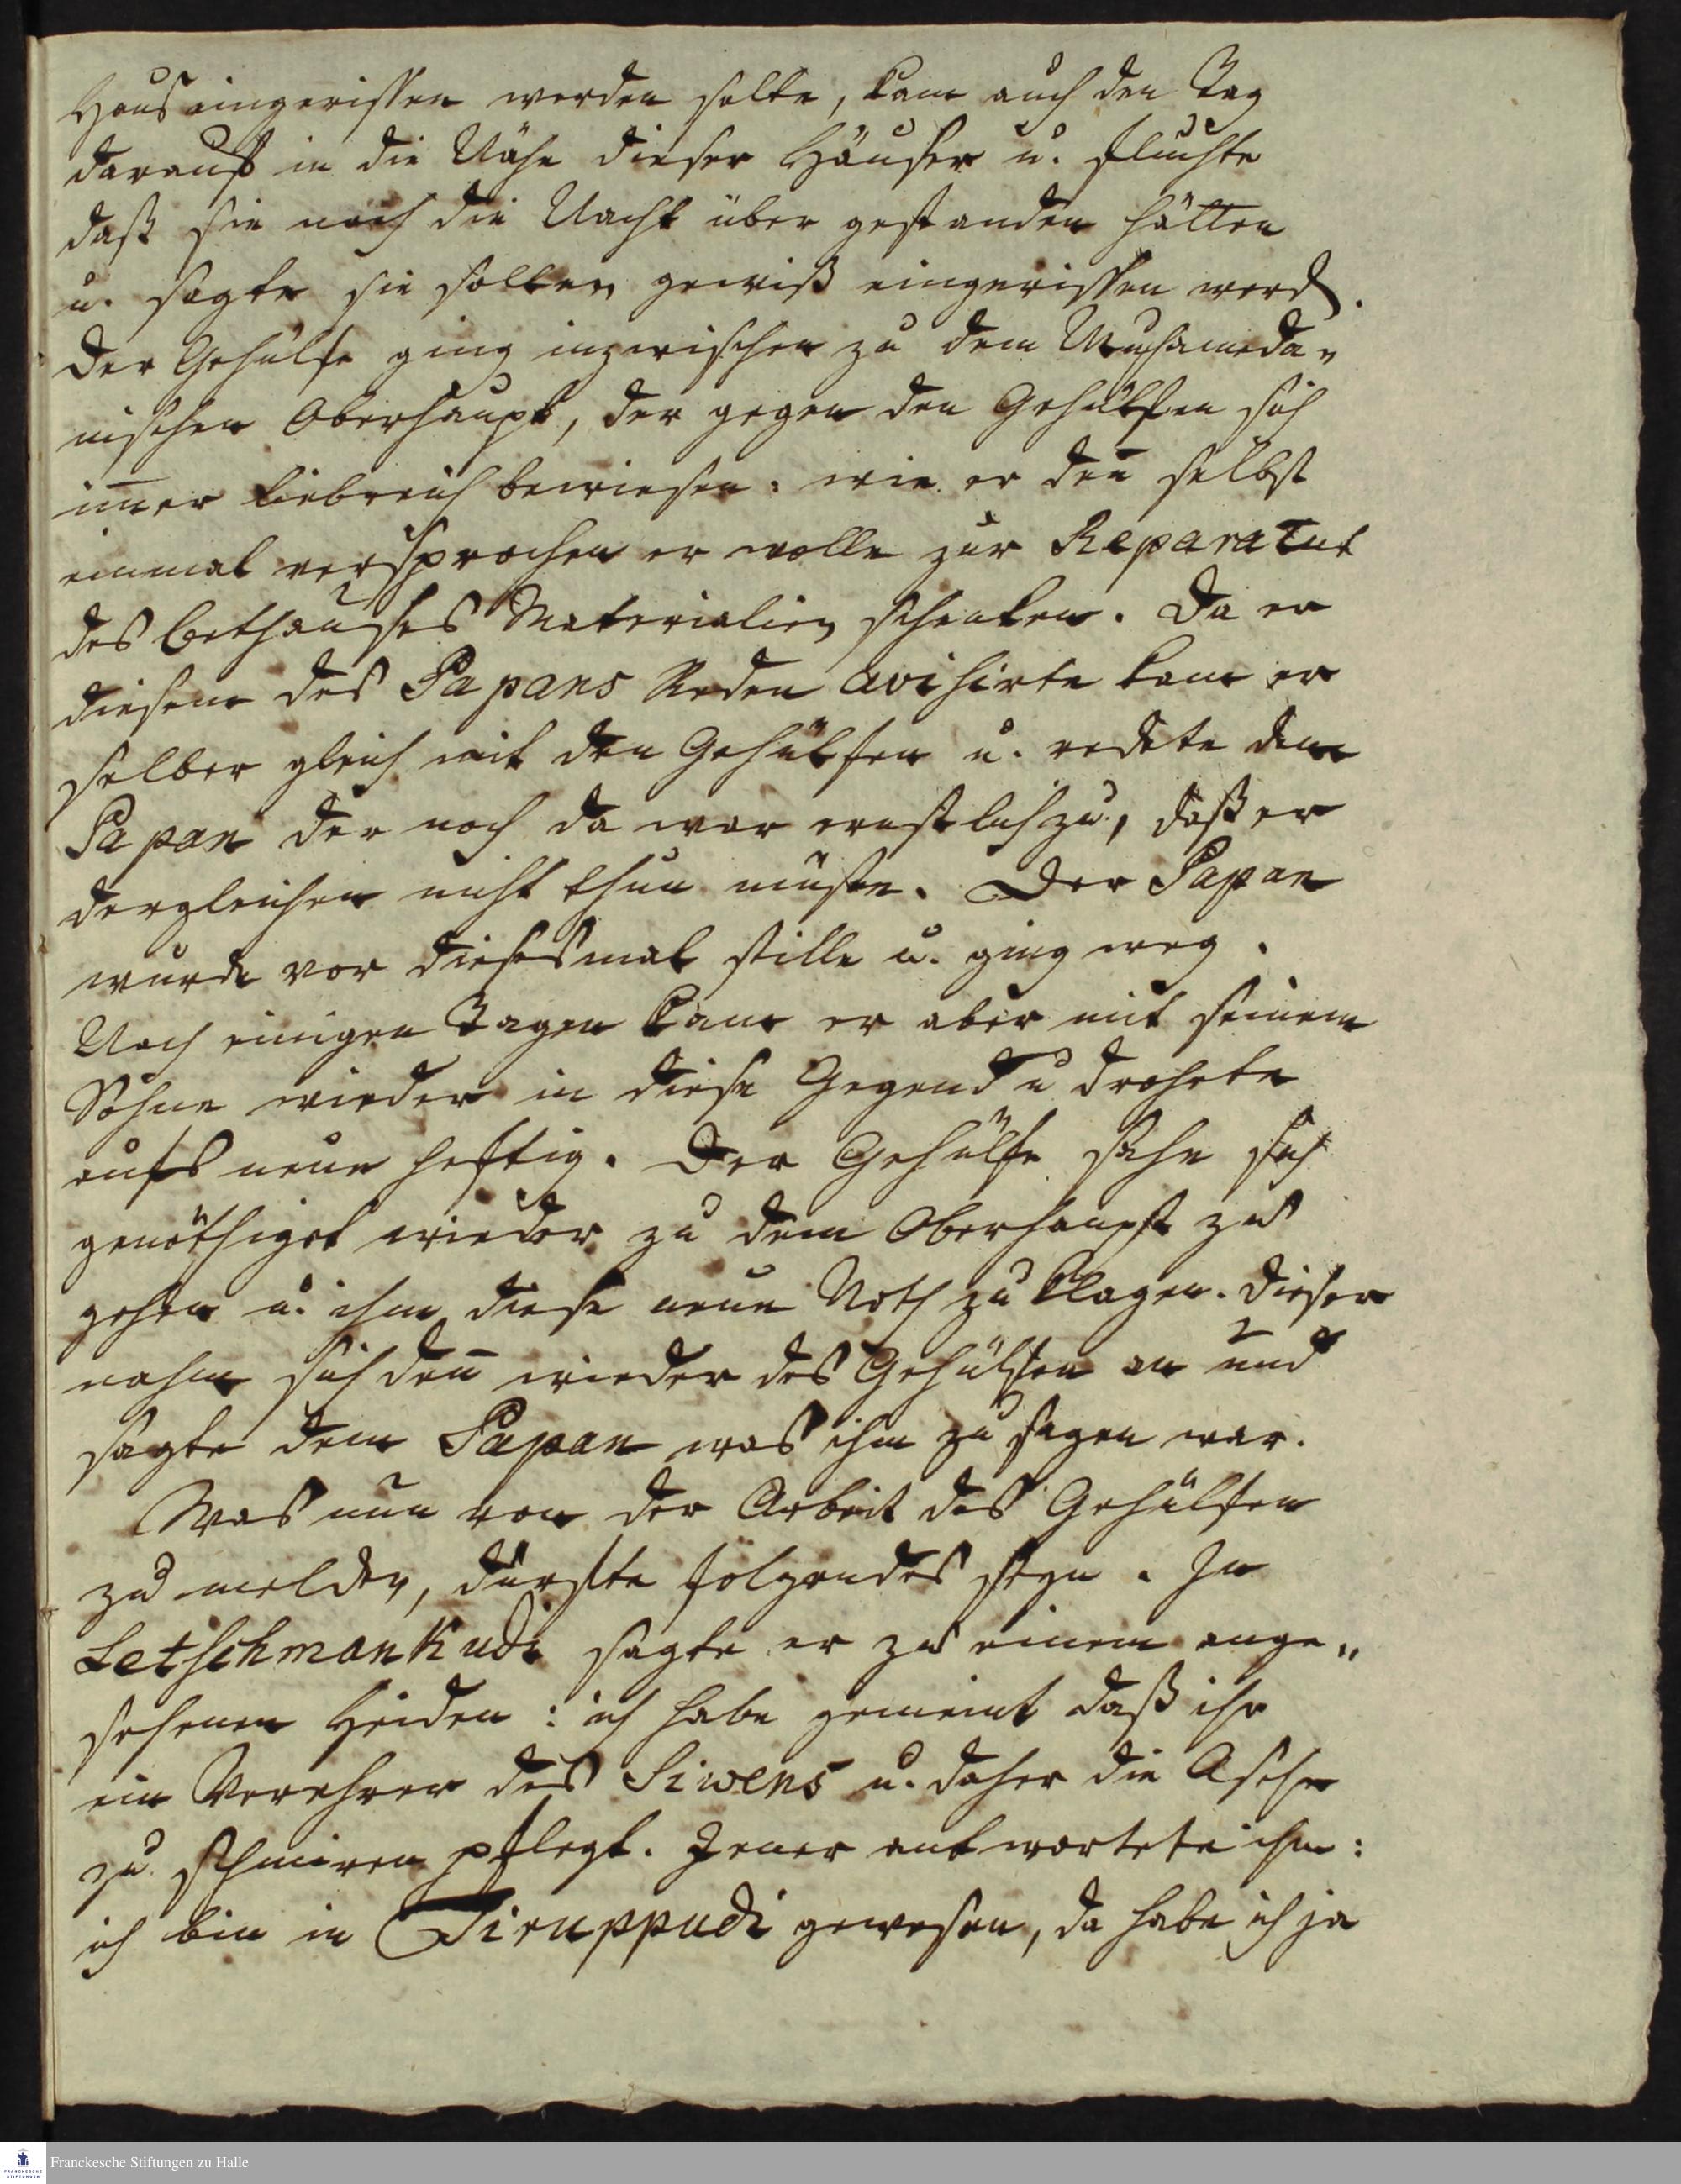 Haus eingerissen werden solte, kam auch den Tag
darauf in die Nähe dieser Häuser u. fluchte
daß sie noch die Nacht über gestanden hätten
u. sagte sie solten gewiß eingerissen werd.
Der Gehülfe ging inzwischen zu dem Muhameda„
nischen Oberhaupt, der gegen den Gehülfen sich
im̄er liebreich bewiesen: wie er den̄ selbst
einmal versprochen er wolle zur Reparatur
des Bethauses Materialien schenken. Da er
diesem des Papans Reden avisirte kam er
selber gleich mit den Gehülfen u. redete dem
Papan der noch da war ernstlich zu, daß er
dergleichen nicht thun müste. Der Papan
wurde vor diesesmal stille u. ging weg.
Nach einigen Tagen kam er aber mit seinem
Sohne wieder in diese Gegend u drohete
aufs neue heftig. Der Gehülfe sahe sich
genöthiget wieder zu dem Oberhaupt zu
gehen u. ihm diese neue Noth zu klagen. Dieser
nahm sich den̄ wieder des Gehülfen an und
sagte dem Papan was ihm zu sagen war.
Was nun von der Arbeit des Gehülfen
zu melden, dürfte folgendes seyn. In
Letschmankudi sagte er zu einem ange„
sehenen Heiden: ich habe gemeint daß ihr
ein Verehrer des Siwens u. daher die Asche
zu schmiren pflegt. Jener antwortete ihm:
ich bin in Tiruppudi gewesen, da habe ich ja
Franckesche Stiftungen zu Halle